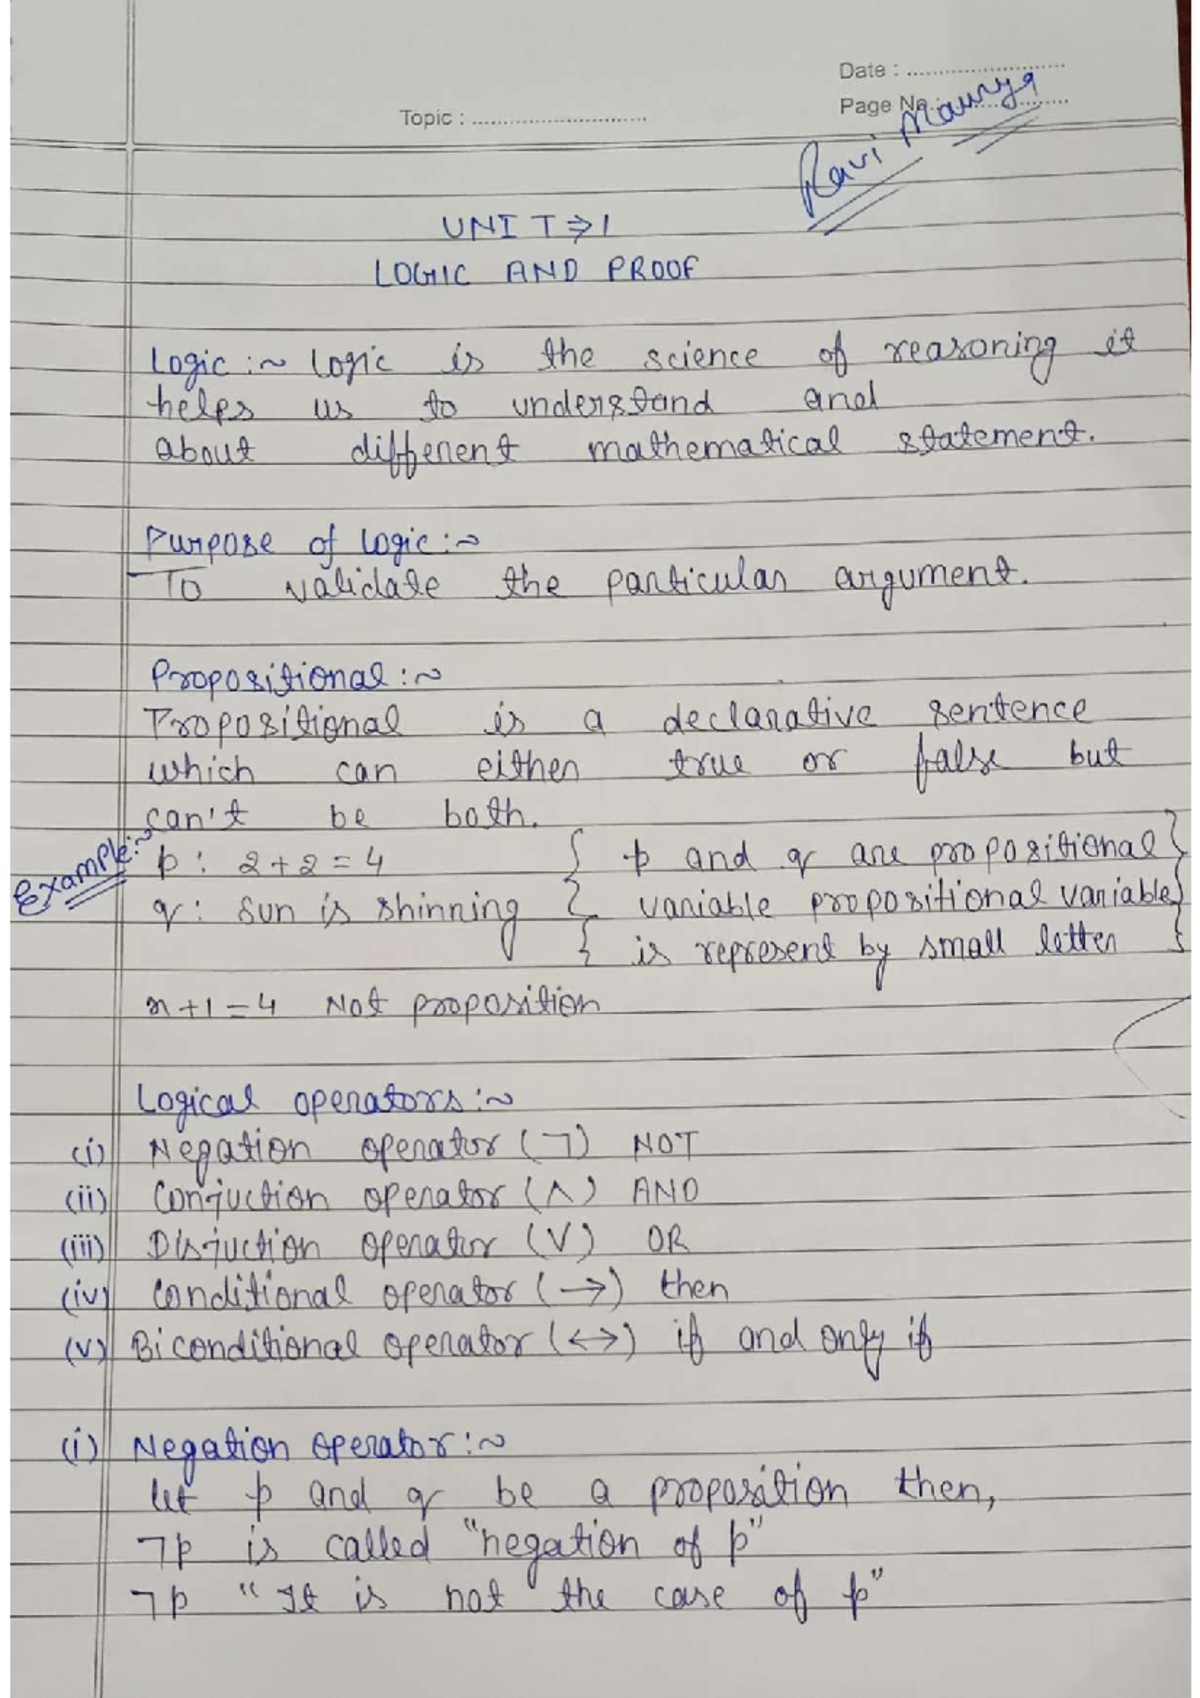 Date :
Page No.
Topic :
Ravi Maurya
UNIT ⇒ 1
LOGIC AND PROOF
Logic :~ Logic is the science of reasoning it
helps us to understand and
about different mathematical statement.
Purpose of Logic :~
To validate the particular argument.
Propositional :~
Propositional is a declarative sentence
which can either true or false but
can't be both.
Example :~
p : 2+2=4 { p and q are propositional }
q : Sun is shinning { variable propositional variable }
{ is represent by small letter }
x+1=4 Not proposition
Logical operators :~
(i) Negation operator (¬) NOT
(ii) Conjuction operator (∧) AND
(iii) Disjuction operator (∨) OR
(iv) Conditional operator (→) then
(v) Biconditional operator (↔) if and only if
(i) Negation operator :~
let p and q be a proposition then,
¬p is called "negation of p"
¬p "It is not the case of p"